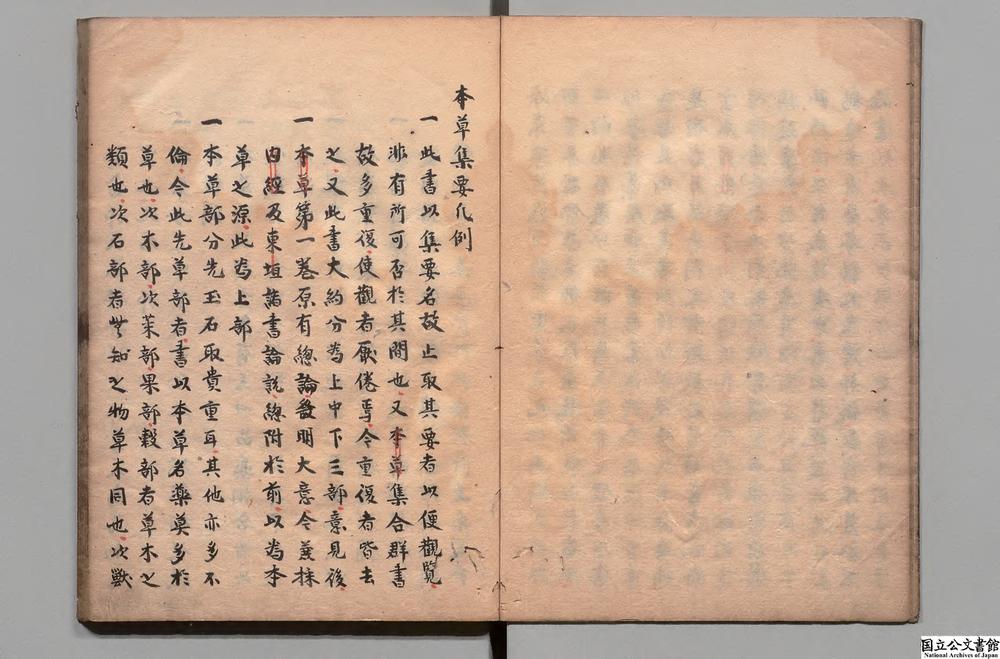 本草集要凡例
一此書以集要名故止取其要者以便觀覽
非有所可否於其間也又本草集合群書
故多重復使觀者厭倦焉今重復者皆去
之又此書大約分為上中下三部意見後
一本草第一卷原有總論發明大意今兼採
内經及東垣諸書論說總附於前以為本
草之源此為上部
一本草部分先玉石取貴重耳其他亦多不
倫今此先草部者書以本草名藥莫多於
草也次木部次菜部果部穀部者草木之
類也次石部者無知之物草木同也次獸
国立公文書館
National Archives of Japan